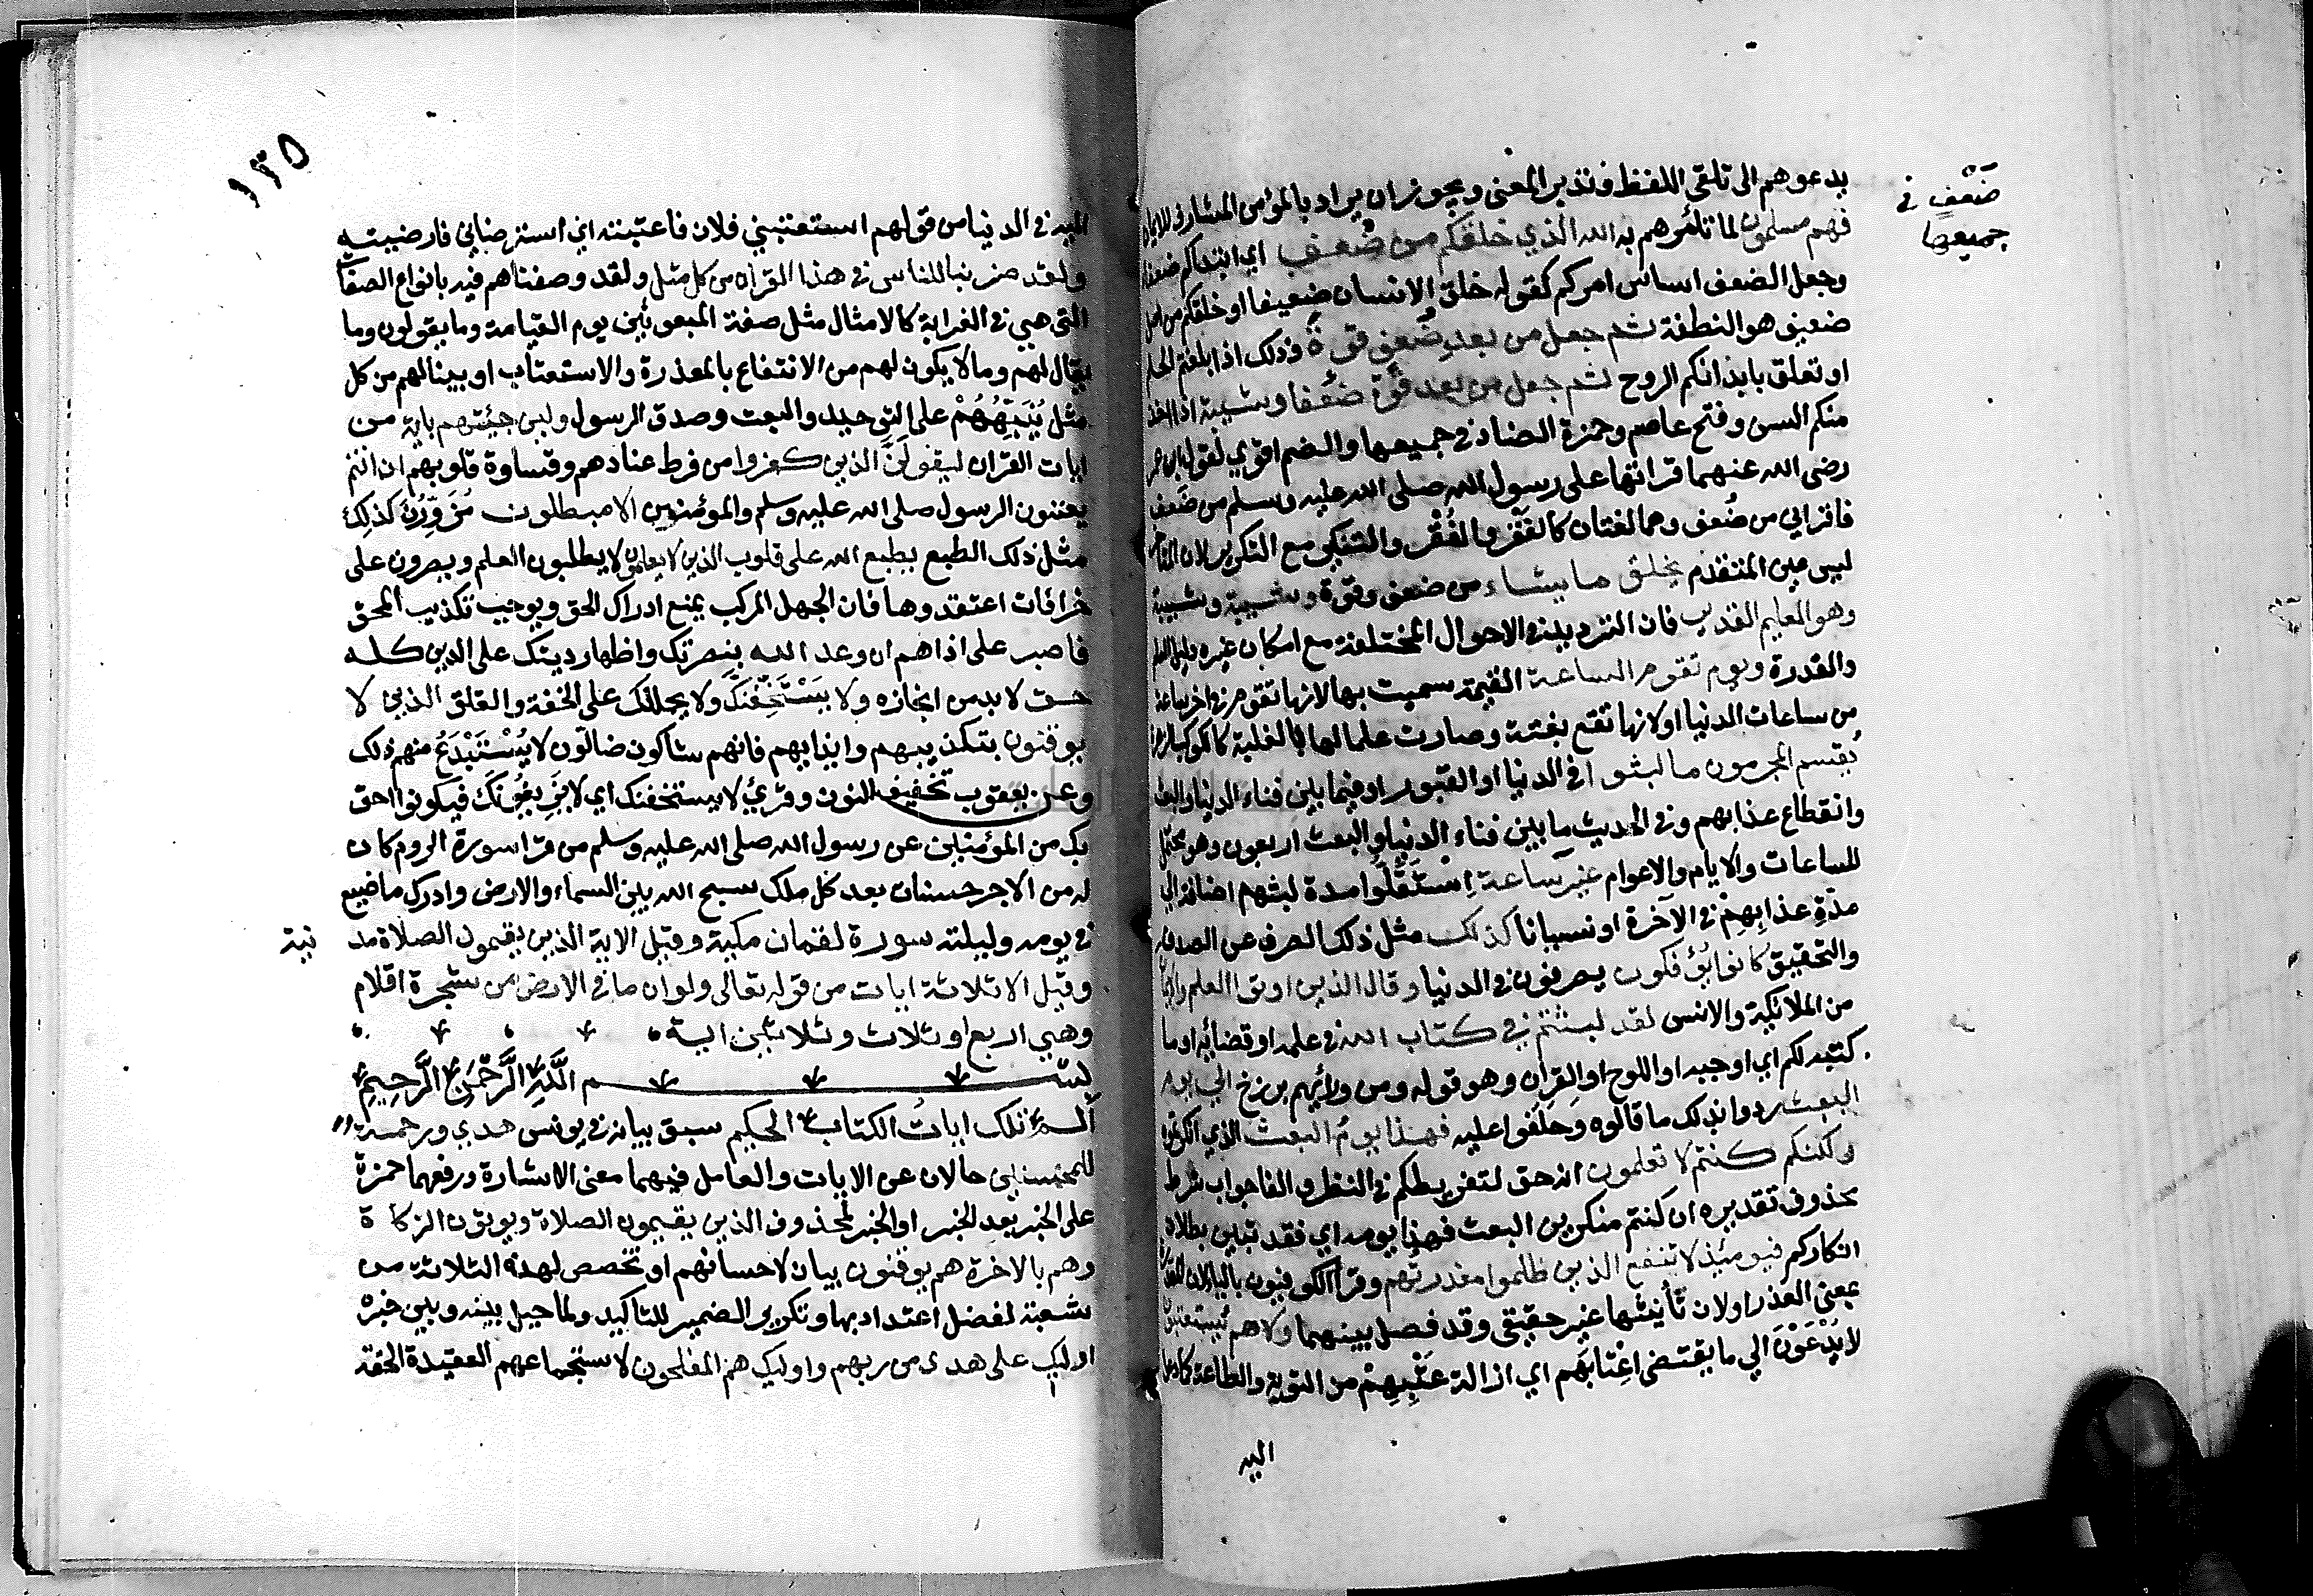 ضَعْفٍ في
جميعها
يدعوهم الى تلقى اللفظ وتدبر المعنى ويجوز ان يراد بالمؤمن المشارف للايمان
فهم مسلمون لما تأمرهم به الله الذي خلقكم من ضعف اي ابتداكم ضعفا
وجعل الضعف اساس امركم كقوله خلق الانسان ضعيفا او خلقكم من اصل
ضعيف هو النطفة ثم جعل من بعدِ ضُعفٍ قوةً وذلك اذا بلغتم الحلم
او تعلق بابدانكم الروح ثم جعل من بعد قوّة ضعفا وشيبة اذا اخذ
منكم السن وفتح عاصم وحمزة الضاد في جميعها والضم اقوي لقول ابن عمر
رضى الله عنهما قراتها على رسول الله صلى الله عليه وسلم من ضَعف
فاقراني من ضُعف وهما لغتان كالفَقر والفُقر والتنكير مع التكرير لان المتاخر
ليس عين المتقدم يخلق ما يشاء من ضعف وقوة وشيبة وشبيبة
وهو العليم القدير فان الترديد في الاحوال المختلفة مع امكان غيره دليل العلم
والقدرة ويوم تقوم الساعة القيمة سميت بها لانها تقوم في اخر ساعة
من ساعات الدنيا اولانها تقع بغتة وصارت علما لها بالغلبة كالكوكب للزهرة
يُقسم المجرمون ما لبثوا في الدنيا او القبور او فيما بين فناء الدنيا والبعث
وانقطاع عذابهم وفي الحديث ما بين فناء الدنيا والبعث اربعون وهو محتمل
للساعات والايام والاعوام غير ساعة اِستَقَلُّوا مدة لبثهم اضافة الي
مدّةِ عذابِهِمْ في الآخرة او نسيانا كذلك مثل ذلك الصرف عن الصدق
والتحقيق كانوا يُؤفكون يصرفون في الدنيا وقال الذين اوتوا العلم والايمان
من الملائكة والانس لقد لبثتم في كتاب الله في علمه او قضائه او ما
كتبه لكم اي اوجبه او اللوح او القرآن وهو قوله ومن ورائهم برزخ الي يوم
البعث ردوا بذلك ما قالوه وحلفوا عليه فهذا يومُ البعث الذي انكرتموه
ولكنكم كنتم لا تعلمون انه حق لتفريطكم في النظر والفا جواب شرط
محذوف تقديره ان كنتم منكرين البعث فهذا يومه اي فقد تبين بطلان
انكاركم فيومئذ لا تنفع الذين ظلموا معذرتهم وقرأ الكوفيون بالياء لان المعذرة
بمعنى العذر اولان تأنيثها غير حقيقى وقد فصل بينهما ولا هم يُستعتبون
لا يُدْعَوْنَ الي ما يقتضى اعْتابَهم اي ازالة عَتْبِهِمْ من التوبة والطاعة كما دعوا
اليه
١٣٥
اليه في الدنيا من قولهم استعتبني فلان فاعتبته اي استرضاني فارضيته
ولقد ضربنا للناس في هذا القرآن من كل مثل ولقد وصفناهم فيه بانواع الصفات
التي هي في الغرابة كالامثال مثل صفة المبعوثين يوم القيامة وما يقولون وما
يقال لهم وما لا يكون لهم من الانتفاع بالمعذرة والاستعتاب او بينا لهم من كل
مثل يُنَبِّهُهُمْ على التوحيد والبعث وصدق الرسول ولين جيتهم باية من
ايات القران ليقولَنَّ الذين كفروا من فرط عنادهم وقساوة قلوبهم ان انتم
يعنون الرسول صلى الله عليه وسلم والمؤمنين الا مبطلون مُزَوِّرُنَ كذلك
مثل ذلك الطبع يطبع الله على قلوب الذين لا يعلمون لا يطلبون العلم ويصرون على
خرافات اعتقدوها فان الجهل المركب يمنع ادراك الحق ويوجب تكذيب المحق
فاصبر على اذاهم ان وعد الله بنصرتك واظهار دينك على الدين كله
حق لا بد من انجازه ولا يَسْتَخِفَّنَكَ ولا يحملنك على الخفة والقلق الذين لا
يوقنون بتكذيبهم وايذايهم فانهم شاكون ضالّون لا يُسْتَبْدَعُ منهم ذلك
وعن يعقوب تخفيف النون وقرئ لا يستحقنك اي لا يُزِيغُنَكَ فيكونوا احق
بك من المؤمنين عن رسول الله صلى الله عليه وسلم من قرا سورة الروم كان
له من الاجر حسنات بعد كل ملك سبح الله بين السماء والارض وادرك ما ضيع
في يومه وليلته سورة لقمان مكية وقيل الا اية الذين يقيمون الصلاة مد نية
وقيل الا ثلاثة ايات من قوله تعالى ولو ان ما في الارض من شجرة اقلام
وهي اربع او ثلاث وثلاثين اية
بسم اللَّهِ الرَّحْمَنِ الرَّحِيمِ
الم تلك اياتُ الكتاب الحكيم سبق بيانه في يونس هدي ورحمة
للمحسنين حالان عن الايات والعامل فيهما معنى الاشارة ورفعهما حمزة
على الخبر بعد الخبر او الخبر لمحذوف الذين يقيمون الصلاة ويوتون الزكاة
وهم بالاخرة هم يوقنون بيان لاحسانهم او تخصص لهذه الثلاثة من
شعبة لفضل اعتداد بها وتكرير الضمير للتاكيد ولما حيل بينه وبين خبره
اوليك على هدى من ربهم واوليك هم المفلحون لاستجماعهم العقيدة الحقة